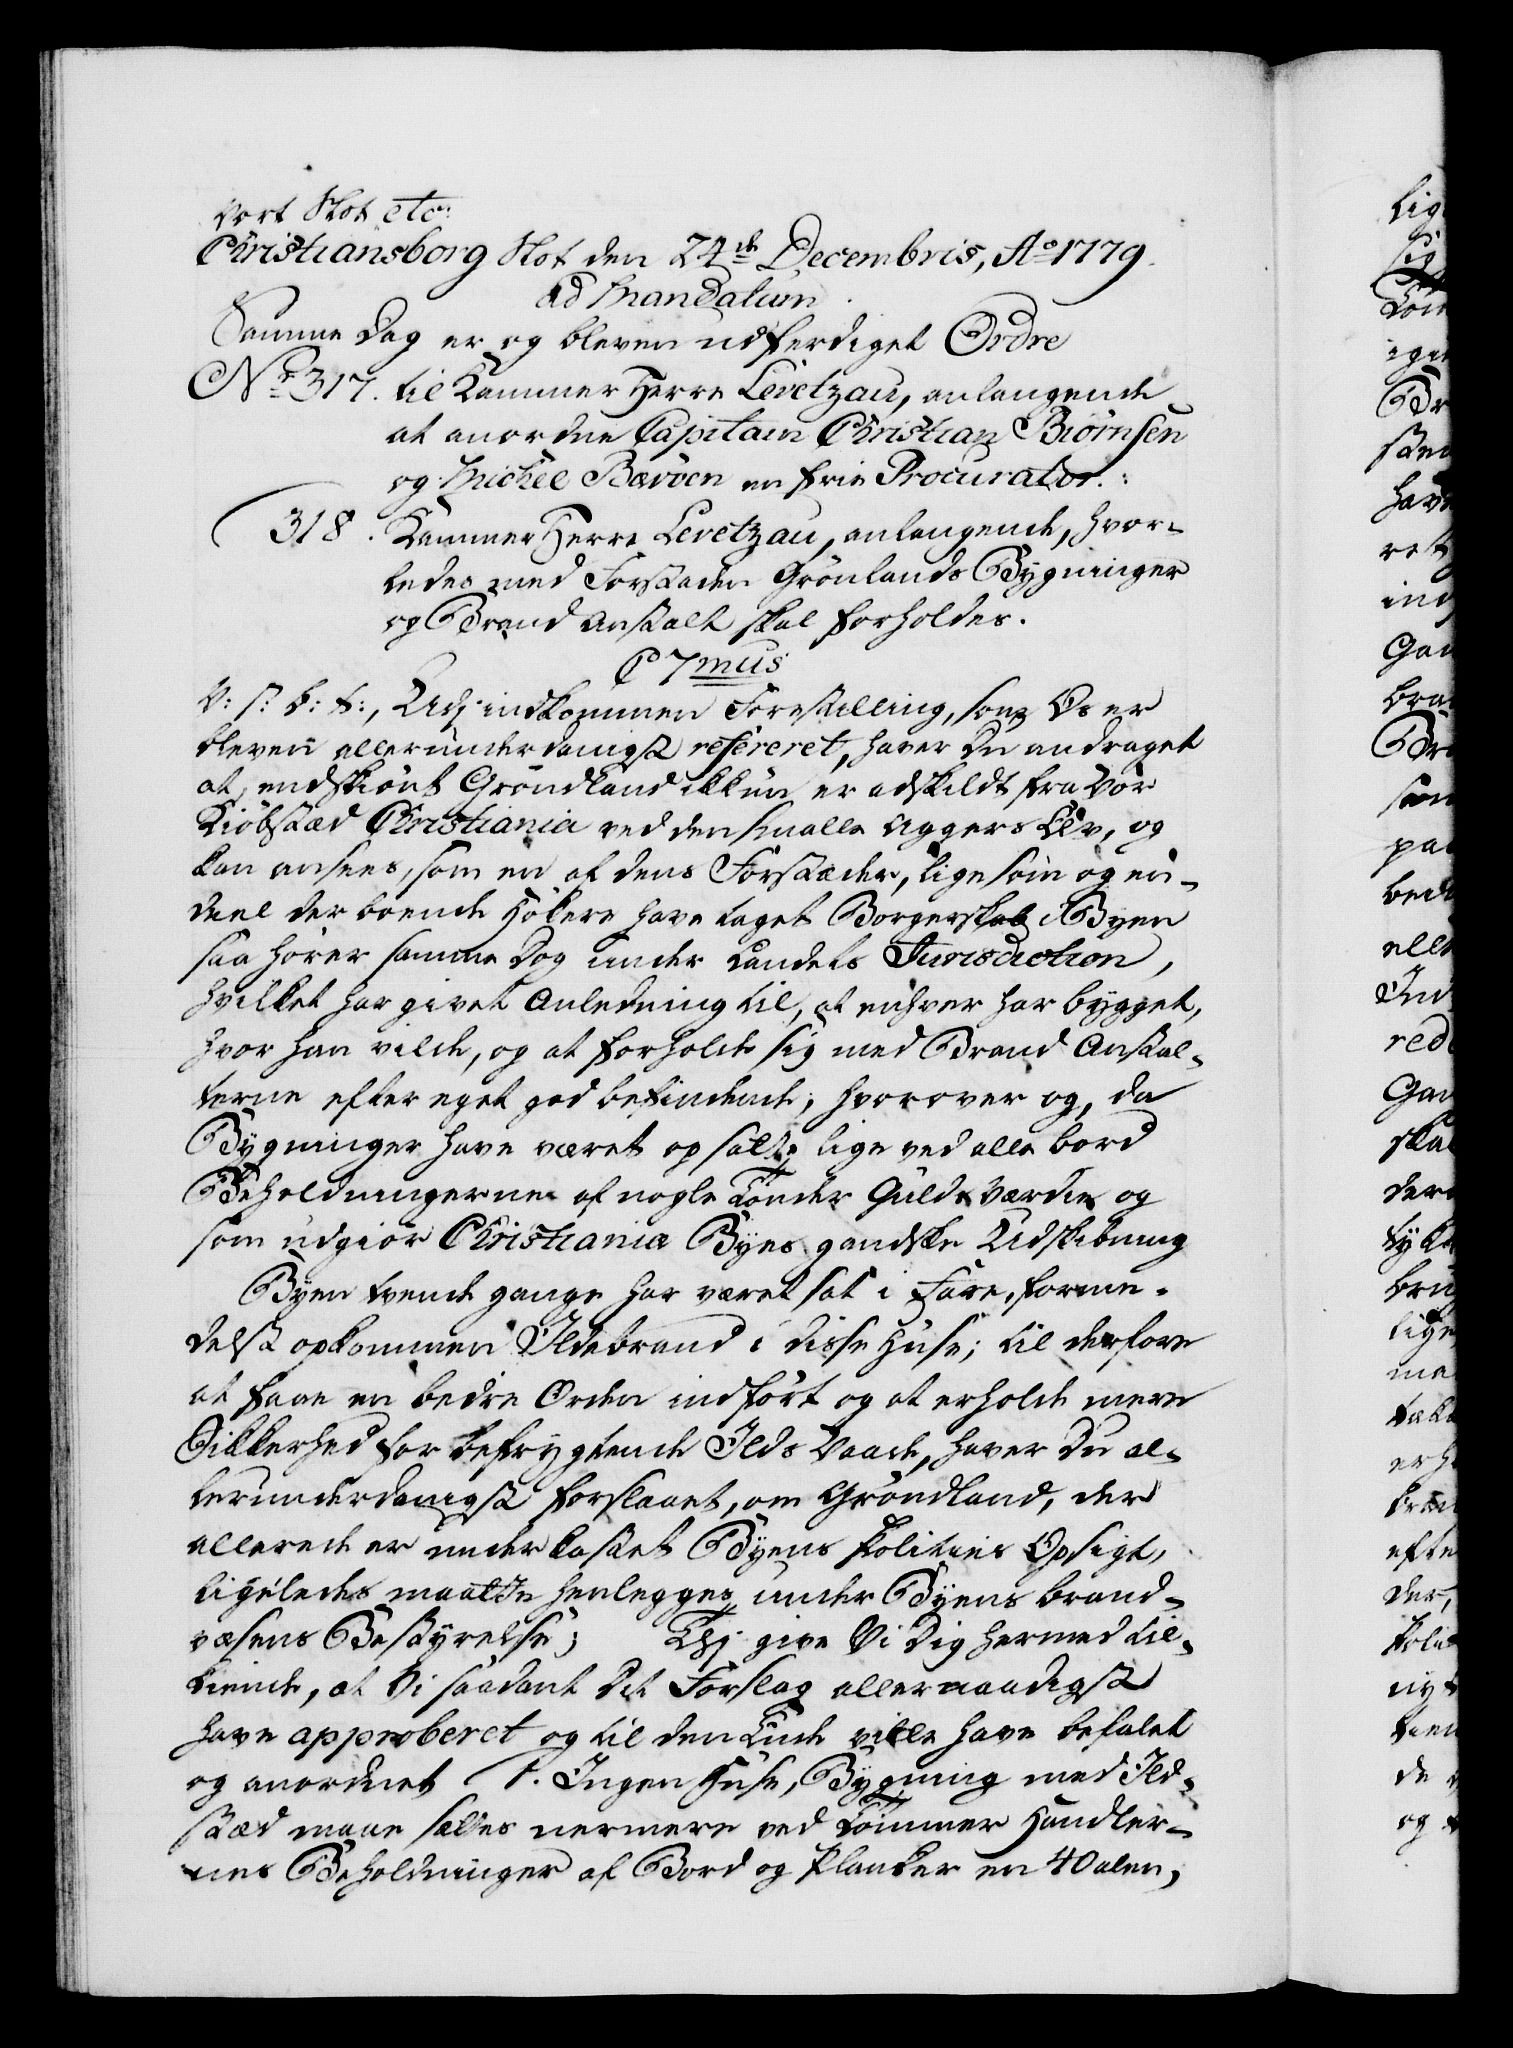 Vort Slot etc:
Christiansborg Slot den 24de Decembris, Ao 1779.
ad Mandatum.
Samme Dag er og bleven udferdiget Ordre
No 317. til Kammer Herre Levetzau, anlangende
at anordne Capitain Christian Biörnsen
og Michel Bæröen en frie Procurator.:
318. Kammer Herre Levetzau, anlangende, hvor-
ledes med Forstaden Grönlands Bygninger
og Brand Anstalt skal forholdes.
C 7mus
V: s: b: t:, Udj indkommen Forestilling, som Os er
bleven allerunderdanigst refereret, haver Du andraget
at, endskiönt Gröndland ikkun er adskildt fra Vor
Kiöbstæd Christiania ved den smalle Aggers Elv, og
kan ansees, som en af dens Forstæder, ligesom og en-
deel der boende Hökere have taget Borgerskab i Byen
saa hörer samme dog under Landets Jurisdiction,
hvilket har givet Anledning til, at enhver har bygget,
hvor han vilde, og at forholde sig med Brand Anstal-
terne efter eget godbefindende; hvorover og, da
Bygninger have været opsatte lige ved alle bord
Beholdningerne af nogle Tönder Guld Værdie og
som udgiör Christianiæ Byes gandske Udskibning
Byen tvende gange har været sat i Fare, forme-
delst opkommen Ildebrand i disse Huse; til derfore
at faae en bedre Orden indfört og at erholde mere
Sikkerhed for befrygtende Ilds Vaade, haver Du al-
lerunderdanigst forslaaet, om Gröndland, der
allerede er underkastet Byens Polities Opsigt,
ligeledes maatte henlegges under Byens brand-
væsens Bestyrelse; Thj give Vi Dig hermed til-
kiende, at Vi saadant Dit Forslag allernaadigst
have approberet og til den Ende ville have befalet
og anordnet 1. Ingen Huse, Bygning med Ild-
stæd maae sættes nermere ved Tömmer Handler-
nes Beholdninger af Bord og Planker en 40 alen,